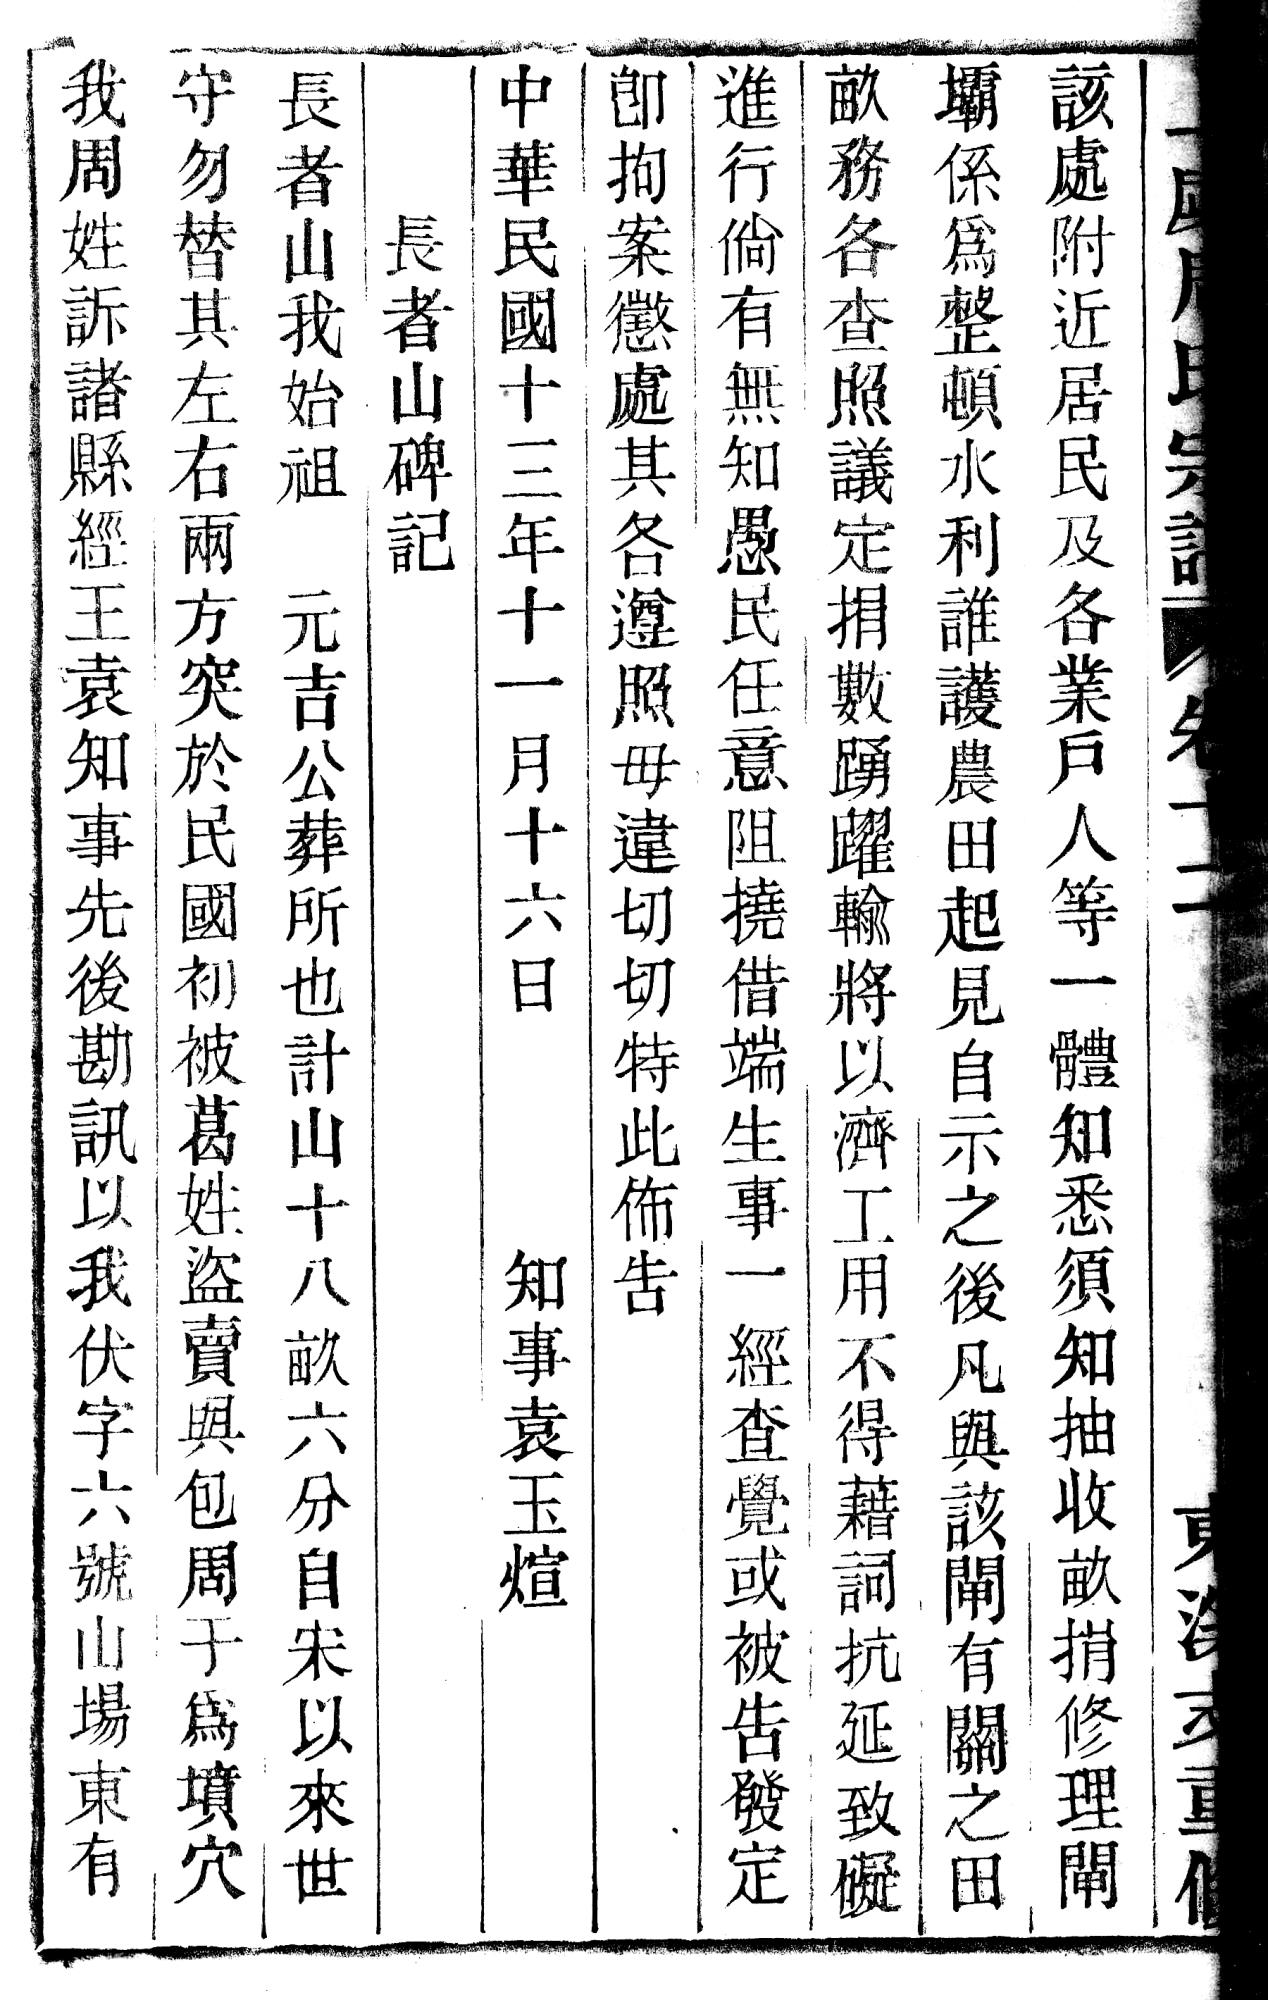 該處附近居民及各業戶人等一體知悉須知抽收畝捐修理閘
壩係爲整頓水利誰護農田起見自示之後凡與該閘有關之田
畝務各查照議定捐數踴躍輸將以濟工用不得藉詞抗延致礙
進行倘有無知愚民任意阻撓借端生事一經查覺或被告發定
卽拘案懲處其各遵照毋違切切特此佈告
中華民國十三年十一月十六日 知事袁玉煊
長者山碑記
長者山我始祖 元吉公葬所也計山十八畝六分自宋以來世
守勿替其左右兩方突於民國初被葛姓盜賣與包周于爲墳穴
我周姓訴諸縣經王袁知事先後勘訊以我伏字六號山場東有